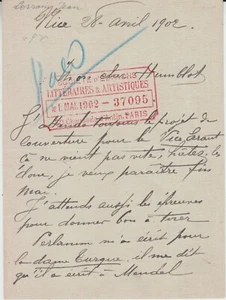 Lorrain, Jean
Nice 28 Avril 1902.
Mon cher Humblot
LITTÉRAIRES & ARTISTIQUES
1. MAI. 1902 - 37095
PARIS
J'attends toujours le projet de
couverture pour le Vice Errant
ça ne vient pas vite, hâtez-les
donc, je veux paraître fin
Mai.
J'attends aussi les épreuves
pour donner bon à tirer
m'a écrit pour
la dame Turque, il me dit
qu'il a écrit à Mendel